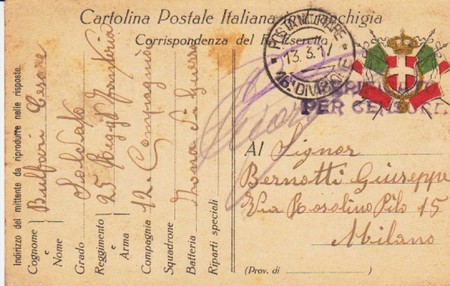 Cartolina Postale Italiana in Franchigia
Corrispondenza del R. Esercito
POSTA MILITARE
13.3.17
16ª DIVISIONE
VERIFICATO
PER CENSURA
Indirizzo del mittente da riprodurre nelle risposte.
Cognome e Nome Cesare
Grado Soldato
Reggimento e Arma 25 Regg. Fanteria
Compagnia 12 Compagnia
Squadrone
Batteria Zona di Guerra
Riparti speciali
Al Signor
Bernotti Giuseppe
Via Rosolino Pilo 15
Milano
(Prov. di )